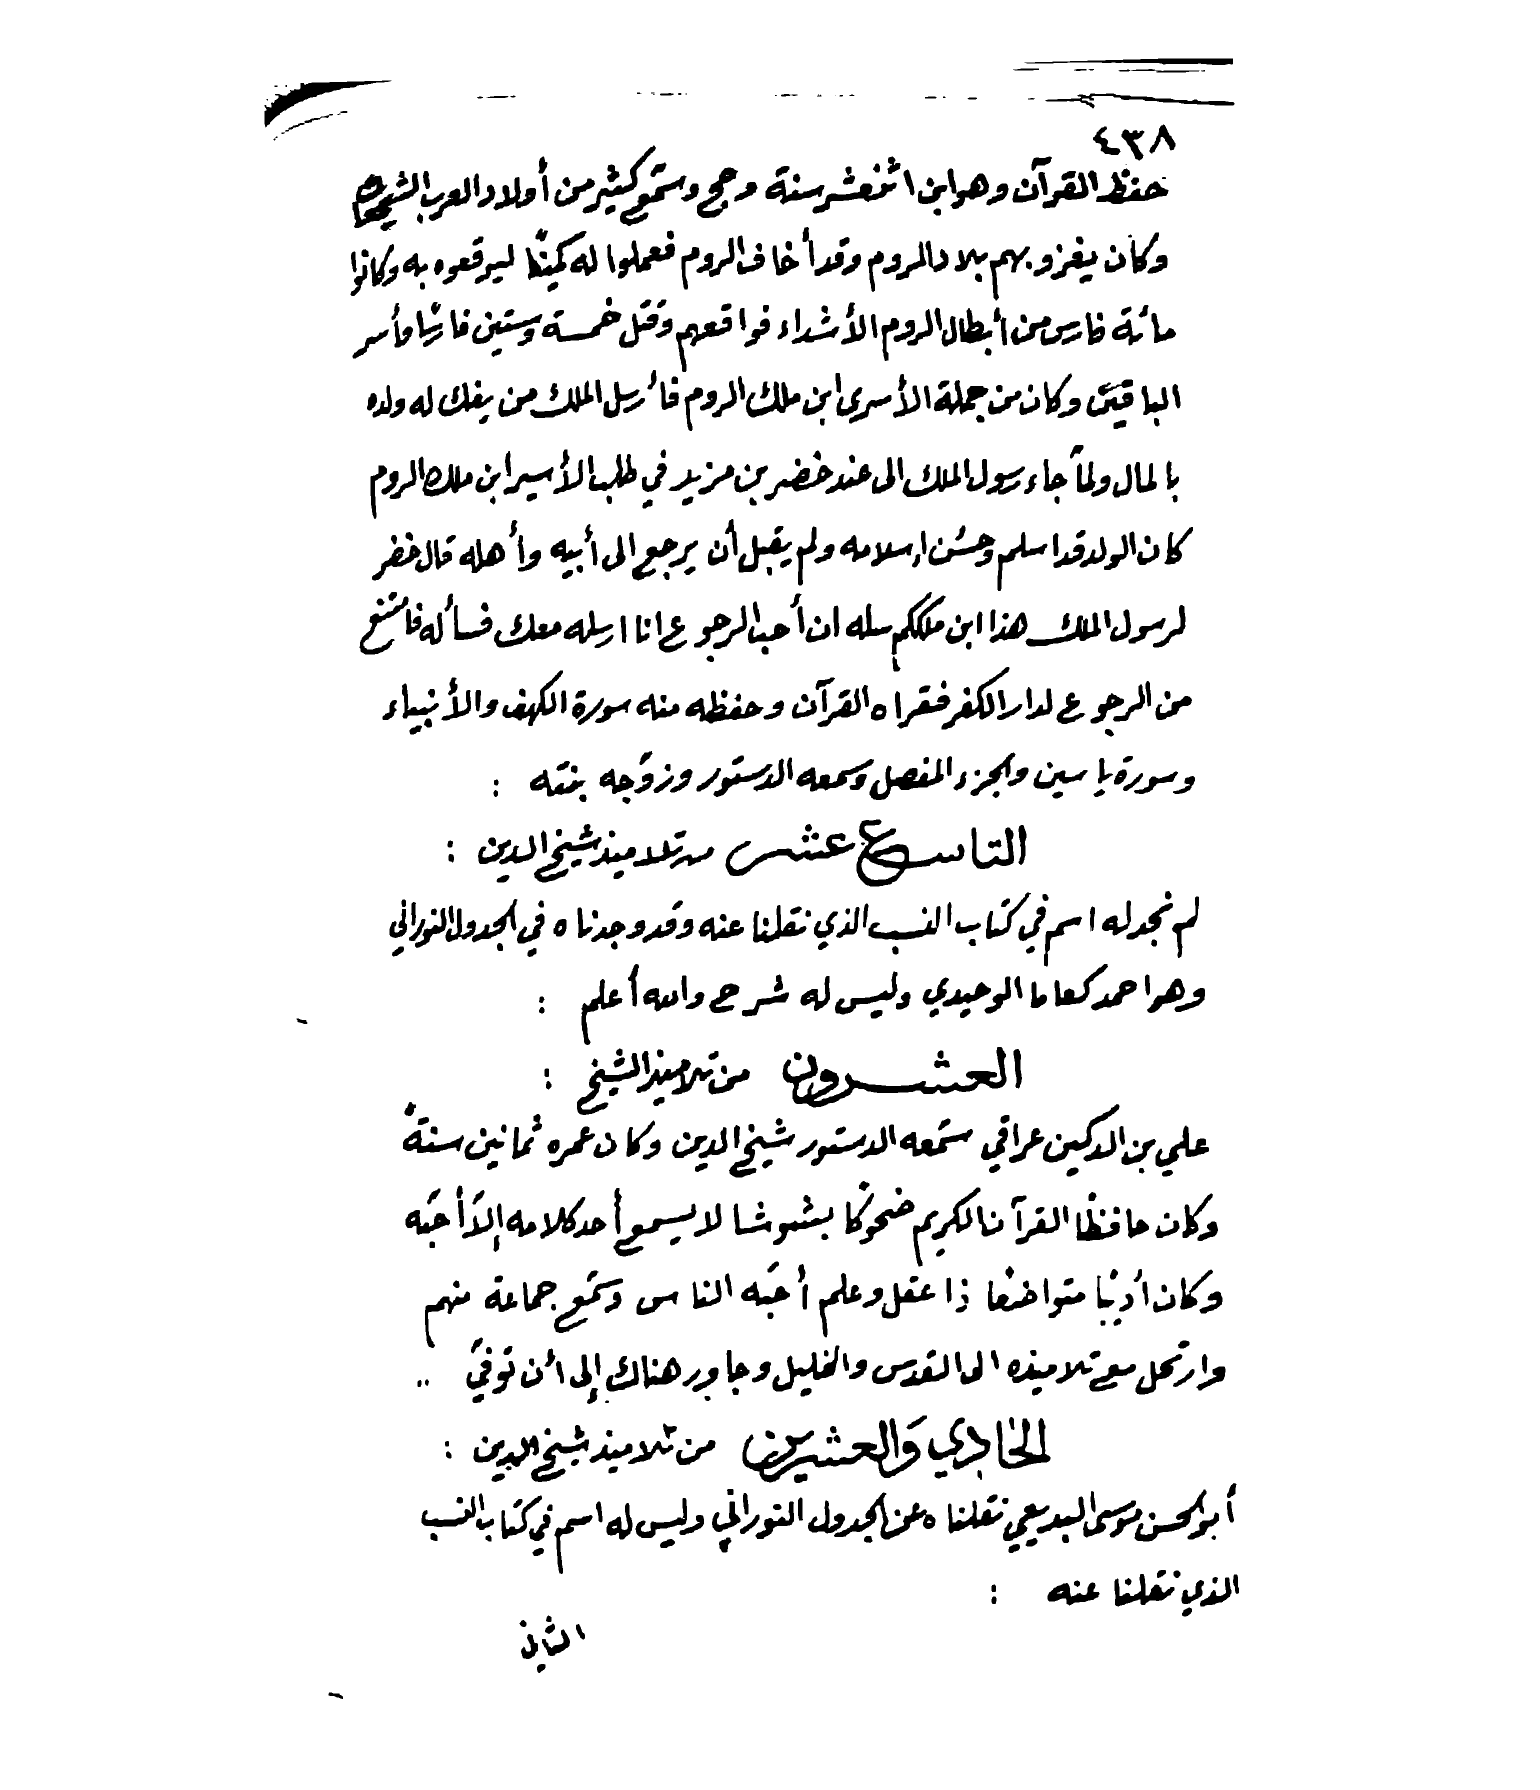 ٤٣٨
حفظ القرآن وهو ابن اثنعشر سنة وحج وسمّع كثير من أولاد العرب الشيحاه
وكان يغزو بهم بلاد الروم وقد أخاف الروم فعملوا له كمينًا ليوقعوه به وكانوا
مائة فارس من أبطال الروم الأشداء فواقعهم وقتل خمسة وستين فارسًا وأسر
الباقيين وكان من جملة الأسرى ابن ملك الروم فأرسل الملك من يفك له ولده
بالمال ولمّا جاء رسول الملك الى عند خضر بن مزيد في طلب الأسير ابن ملك الروم
كان الولد قد اسلم وحسُن إسلامه ولم يقبل أن يرجع الى أبيه وأهله قال خضر
لرسول الملك هذا ابن ملككم سله ان أحب الرجوع انا ارسله معك فسأله فامتنع
من الرجوع لدار الكفر فقراه القرآن وحفظه منه سورة الكهف والأنبياء
وسورة ياسين والجزء المفصل وسمعه الدستور وزوّجه بنته :
التاسع عشر من تلاميذ شيخ الدين :
لم نجد له اسم في كتاب النسب الذي نقلنا عنه وقد وجدناه في الجدول النوراني
وهو احمد كعاما الوحيدي وليس له شرح والله أعلم :
العشرون من تلاميذ الشيخ :
علي بن الدكين عراقي سمّعه الدستور شيخ الدين وكان عمره ثمانين سنةً
وكان حافظًا القرآن الكريم ضحوكًا بشوشا لا يسمع أحد كلامه إلاّ أحبّه
وكان أديبًا متواضعًا ذا عقل وعلم أحبّه الناس وسمّع جماعة منهم
وارتحل مع تلاميذه الى القدس والخليل وجاور هناك إلى أن توفيّ ..
الحادي والعشرين من تلاميذ شيخ الدين :
أبو الحسن موسى البديعي نقلناه عن الجدول النوراني وليس له اسم في كتاب النسب
الذي نقلنا عنه :
الثاني